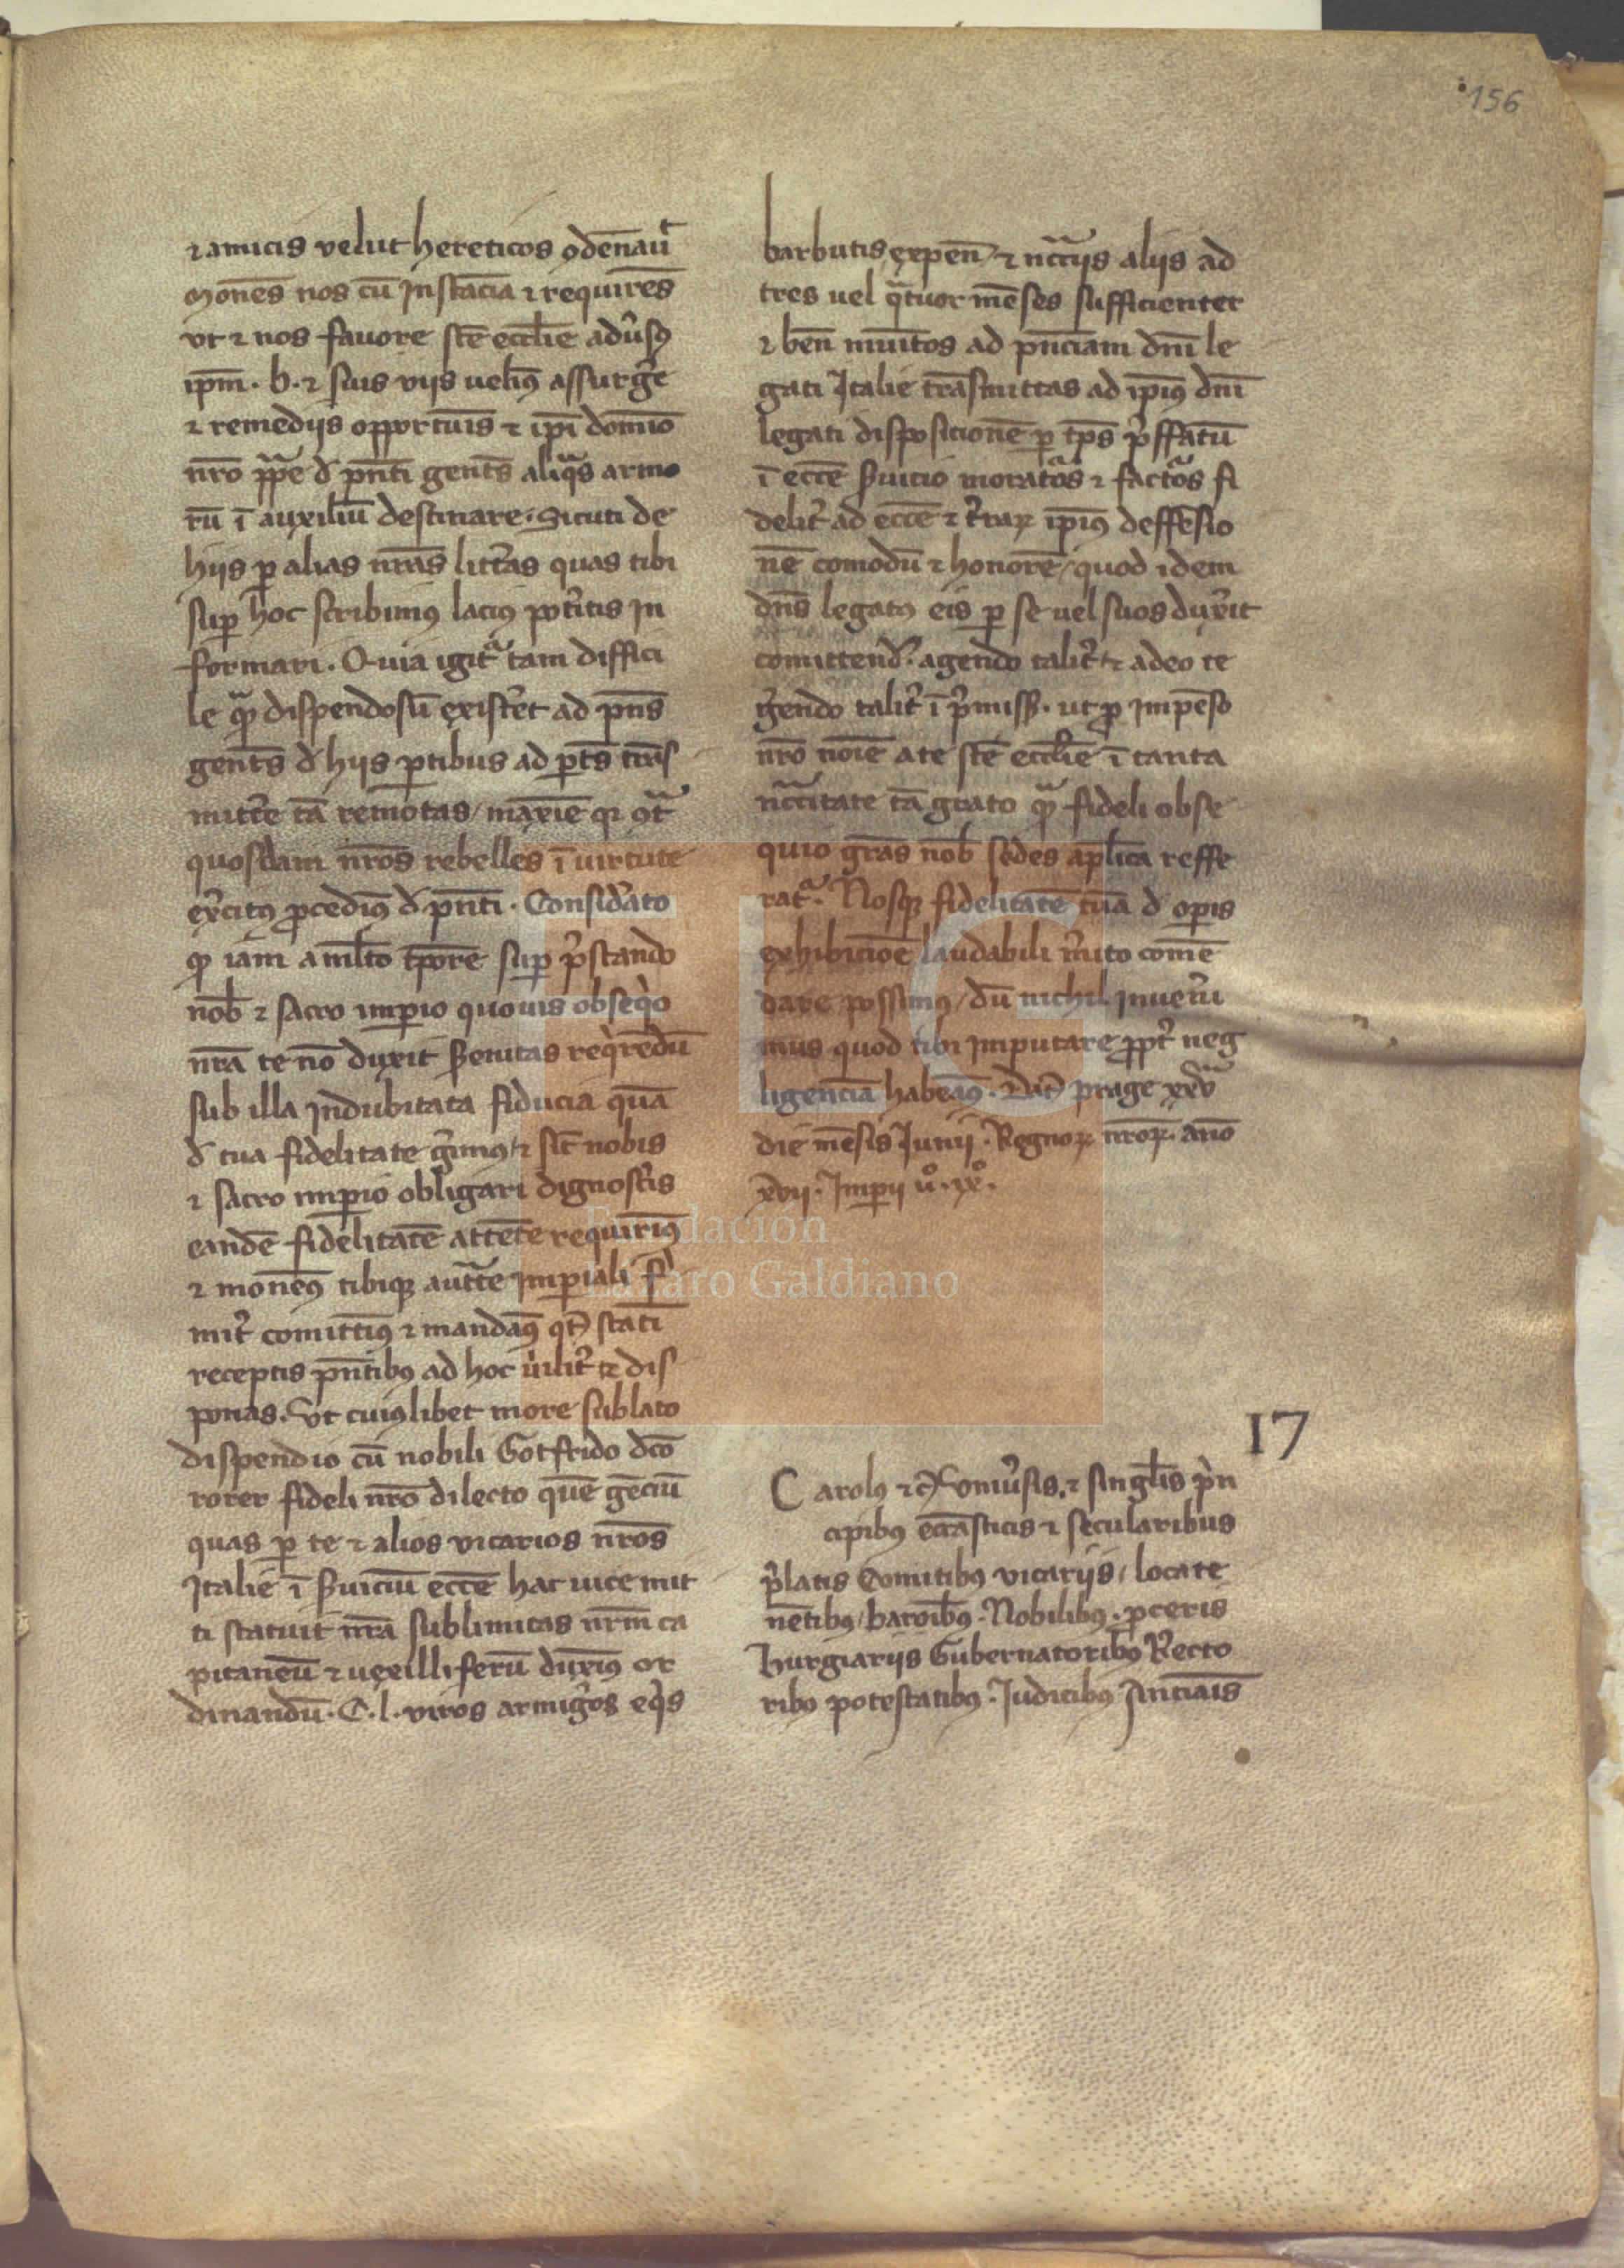 156
⁊ amicis velut hereticos ꝯdēnauͭ
Monēs nos cū Instācia ⁊ requirēs
vt ⁊ nos fauore stē ecclie adūsꝰ
ip̄m . b . ⁊ suis viis uelimꝰ assurgē
⁊ remediis opportuis ⁊ ip̄i domino
nr̄o pp̄e d̄ pn̄ti gentes aliqͣs armo
rū ī auxiliū destinare . Sicuti de
hiis ꝑ alias nr̄as litteras quas tibi
suꝑ hoc scribimꝰ lacius poteritis In
formari . Quia igitͣ tam diffici
le qͣꝫ dispendosū existeret ad pn̄s
gentes d̄ hiis ꝑtibus ad ꝑtes trās
mittē tā remotas / maxīe qꝛ ꝯtͣ
quosdam nr̄os rebelles ī virtute
exercitꝰ ꝓcedimꝰ d̄ pn̄ti . Considerato
ꝙ iam a multo tp̄ore suꝑ p̄stando
nob̄ ⁊ sacro imꝑio quouis obseqͥo
nr̄a te nō duxit S̄enitas reqͥrēdū
sub illa Indubitata fiducia quā
d̄ tua fidelitate gerimꝰ ⁊ sic̄ nobis
⁊ sacro imꝑio obligari dignosc̄is
eandē fidelitatē attēte requirimꝰ
⁊ monemꝰ tibiqꝫ auc̄te Imꝑiali fir
mit̄ comittimꝰ ⁊ mandamꝰ qt̄ statī
receptis pn̄tibꝰ ad hoc uirilit̄ te dis
ponas . vt cuiuslibet more sublato
dispendio cū nobili Gotfrido dc̄o
rorer fideli nr̄o dilecto quē gēciū
quas ꝑ te ⁊ alios vicarios nr̄os
Italie ī S̄uiciū ecc̄e hac uice mit
ti statuit nr̄a sublimitas nr̄m ca
pitaneū ⁊ vexilliferū duximꝰ or
dinandū . C . l . viros armigeros eqͥs
barbutis, expen̄ ⁊ nc̄c̄iis aliis ad
tres uel qͣtuor mēses sufficienter
⁊ ben̄ munitos ad pn̄ciam dn̄i le
gati Italie trāsmittas ad ip̄ius dn̄i
legati disposicionē ꝑ tp̄s p̄ffatū
ī ecc̄e S̄uicio moratͦs ⁊ factͦs fi
delit̄ ad ecc̄e ⁊ t̄raꝝ ip̄ius deffēsio
nē comodū ⁊ honorē / quod idem
dn̄s legatꝰ eis ꝑ se vel suos duxerit
comittend̄ . agendo talit̄ ⁊ adeo te
gerendo talit̄ ī p̄miss̄ . ut ꝓ Impēso
nr̄o noīe a te stē ecclie ī tanta
nc̄c̄itate tā grato qͣꝫ fideli obse
quio gr̄as nob̄ sedes apl̄ica reffe
ratͣ . Nosqꝫ fidelitatē tuā d̄ oꝑis
exhibicioē laudabili m̄ito comē
dare possimꝰ / dū nichil Inueni
mus quod tibi Imputare ꝓpt̄ neg
ligenciā habeamꝰ . Dat̄ prage xxv
die mēsis Iunii . Regnoꝝ nr̄oꝝ . ano
xvii . Imꝑii v̊ . ix̊ .
17
Carolꝰ ⁊c̄ vniūsis, ⁊ singlis p̄n
cipibꝰ eccāsticis ⁊ secularibus
p̄latis Comitibꝰ vicariis / locate
nētibꝰ / baroībꝰ . Nobilibꝰ . ꝓceris
burgrauiis Gubernatoribꝰ Recto
ribꝰ potestatibꝰ . Iudicibꝰ Anciāis
Fundación
Lázaro Galdiano